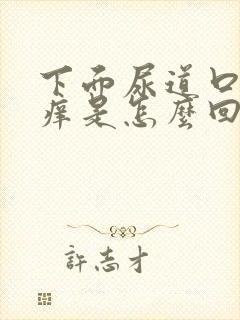 下而尿道口
痒是怎麼回
許志才